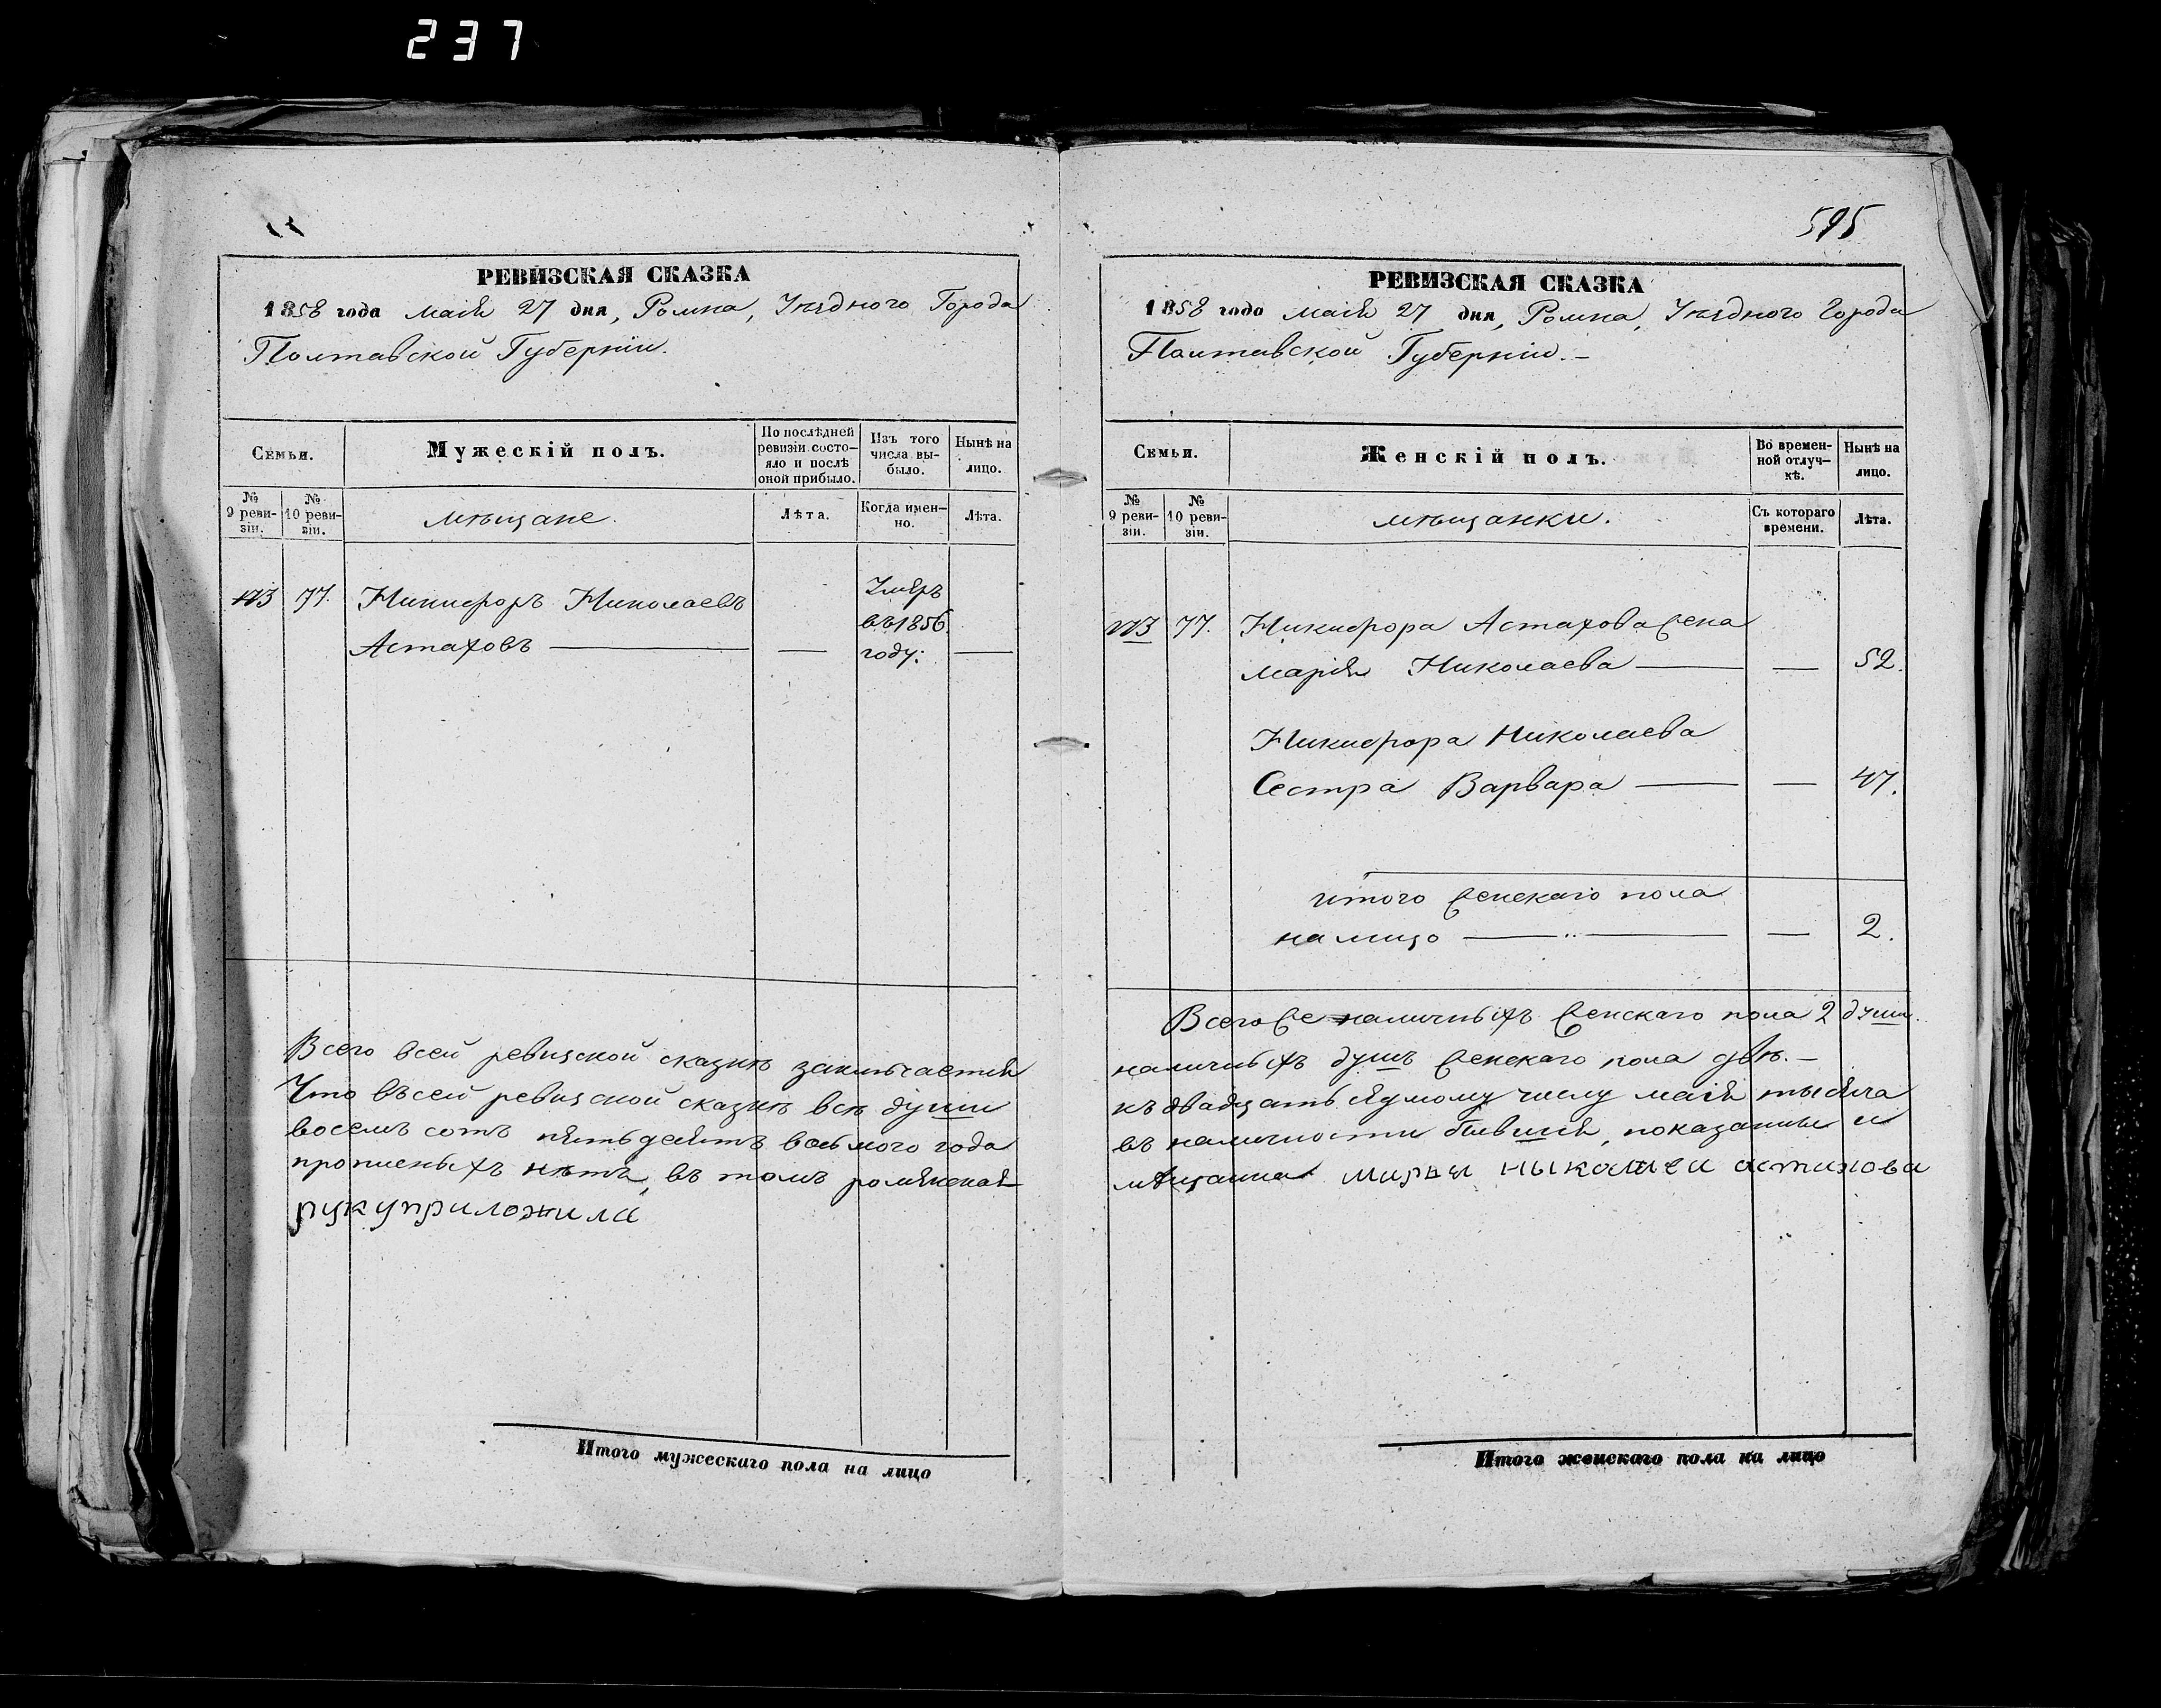 237
РЕВИЗСКАЯ СКАЗКА
1858 года маія 27 дня, Ромна, Уѣзднаго Города
Полтавской Губерніи.
Семьи.
Мужескій полъ.
По послѣдней
ревизіи состо-
яло и послѣ
оной прибыло.
Изъ того
числа вы-
было.
Нынѣ на
лицо.
№
9 реви-
зіи.
№
10 реви-
зіи.
мѣщане.
Лѣта.
Когда имен-
но.
Лѣта.
77.
Никифоръ Николаевъ
Астаховъ —
—
Умеръ
въ 1856
году.
—
Всего всей ревизской сказкѣ заключается
Что въ сей ревизской сказкѣ всѣ души
восемъ сотъ пятьдесятъ восьмого года
прописныхъ нѣтъ, въ томъ роменская
руку приложила
Итого мужескаго пола на лицо
595
РЕВИЗСКАЯ СКАЗКА
1858 годо маія 27 дня, Ромна, Уѣзднаго Города
Полтавской Губерніи. –
Семьи.
Женскій полъ.
Во времен-
ной отлуч-
кѣ.
Нынѣ на
лицо.
№
9 реви-
зіи.
№
10 реви-
зіи.
мѣщанки.
Съ котораго
времени.
Лѣта.
77.
Никифора Астахова жена
марія Николаева — — 52.
Никифора Николаева
Сестра Варвара — — 47.
итого женскаго пола
на лицо — „ — — 2.
Всего же наличныхъ женскаго пола 2 души.
наличныхъ душъ женскаго пола двѣ. –
къ двадцать седмому числу маія тысяча
въ наличности бывшія, показанны и
мѣщанка мария ныколаеи астахова
Итого женскаго пола на лицо